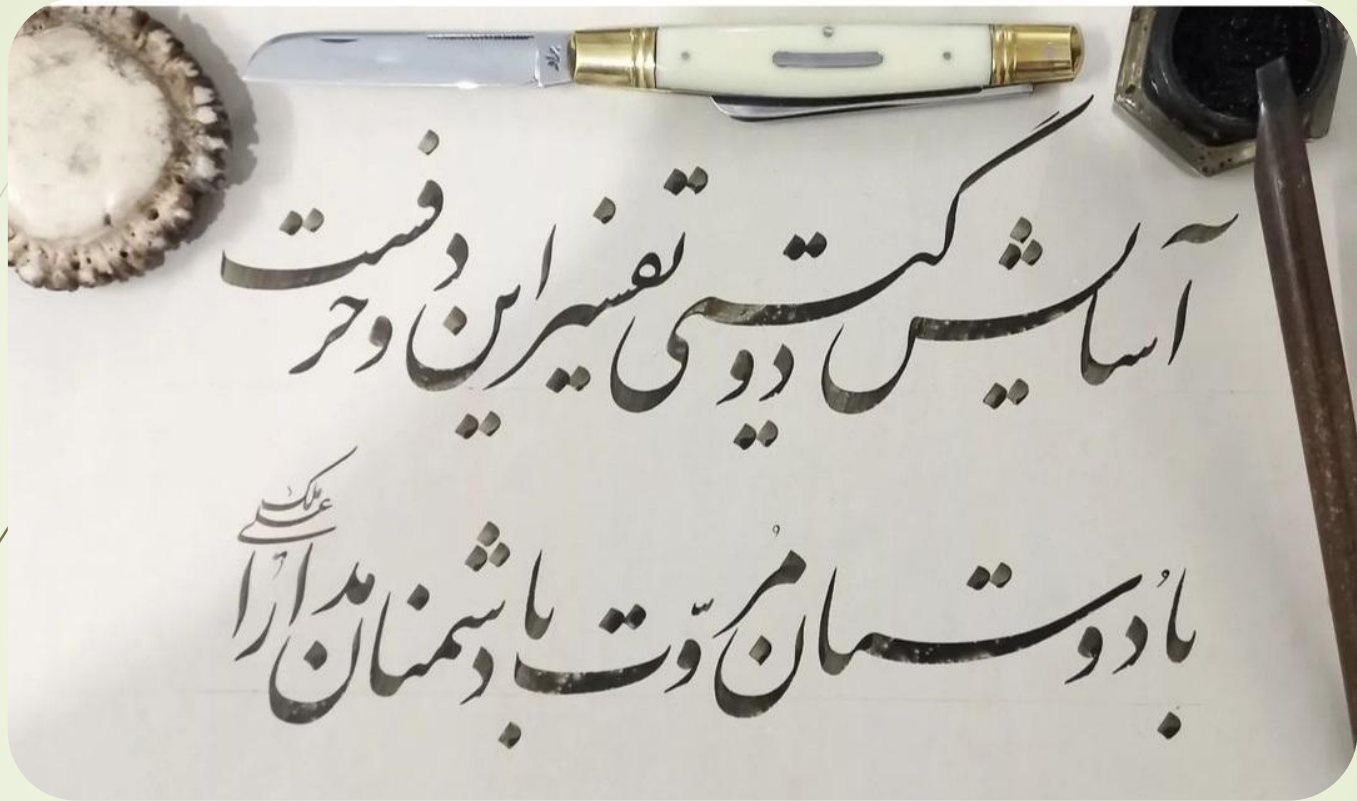 آسایش دو گیتی تفسیر این دو حرفست
با دوستان مُروّت با دشمنان مدارا
علی ملک